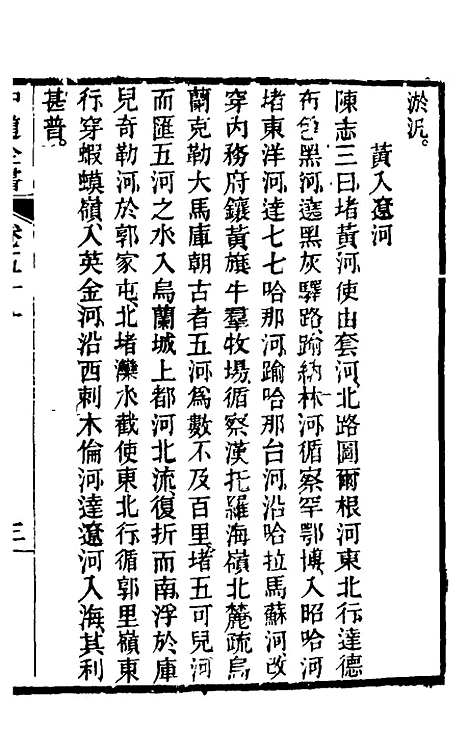 淤沉。
黃入遼河
陳志三曰堵黃河使由套河北路圖爾根河東北行達德
布色黑河達黑灰驛路踰納林河循察罕鄂博入昭哈河
堵東洋河達七七哈那河踰哈那台河沿哈拉馬蘇河改
穿內務府鑲黃旗牛羣牧場循察漢托羅海嶺北麓疏烏
蘭克勒大馬庫朝古者五河爲數不及百里堵五可兒河
而匯五河之水入烏蘭城上都河北流復折而南浮於庫
兒奇勒河於郭家屯北堵灤水截使東北行循郭里嶺東
行穿蝦蟆嶺入英金河沿西刺木倫河達遼河入海其利
甚普。
中道全書
卷五十
三